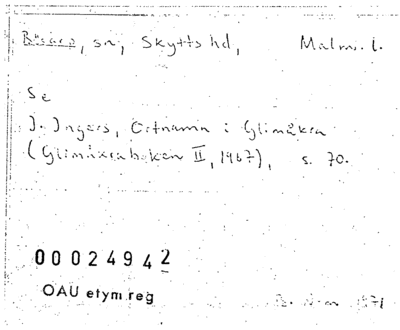 Bösarp, sn, Skytts hd, Malm. l.
Se
J. Ingers, Ortnamn i Glimåkra
(Glimåkraboken II, 1967), s. 70.
000 2494 2
OAU etym reg
1971